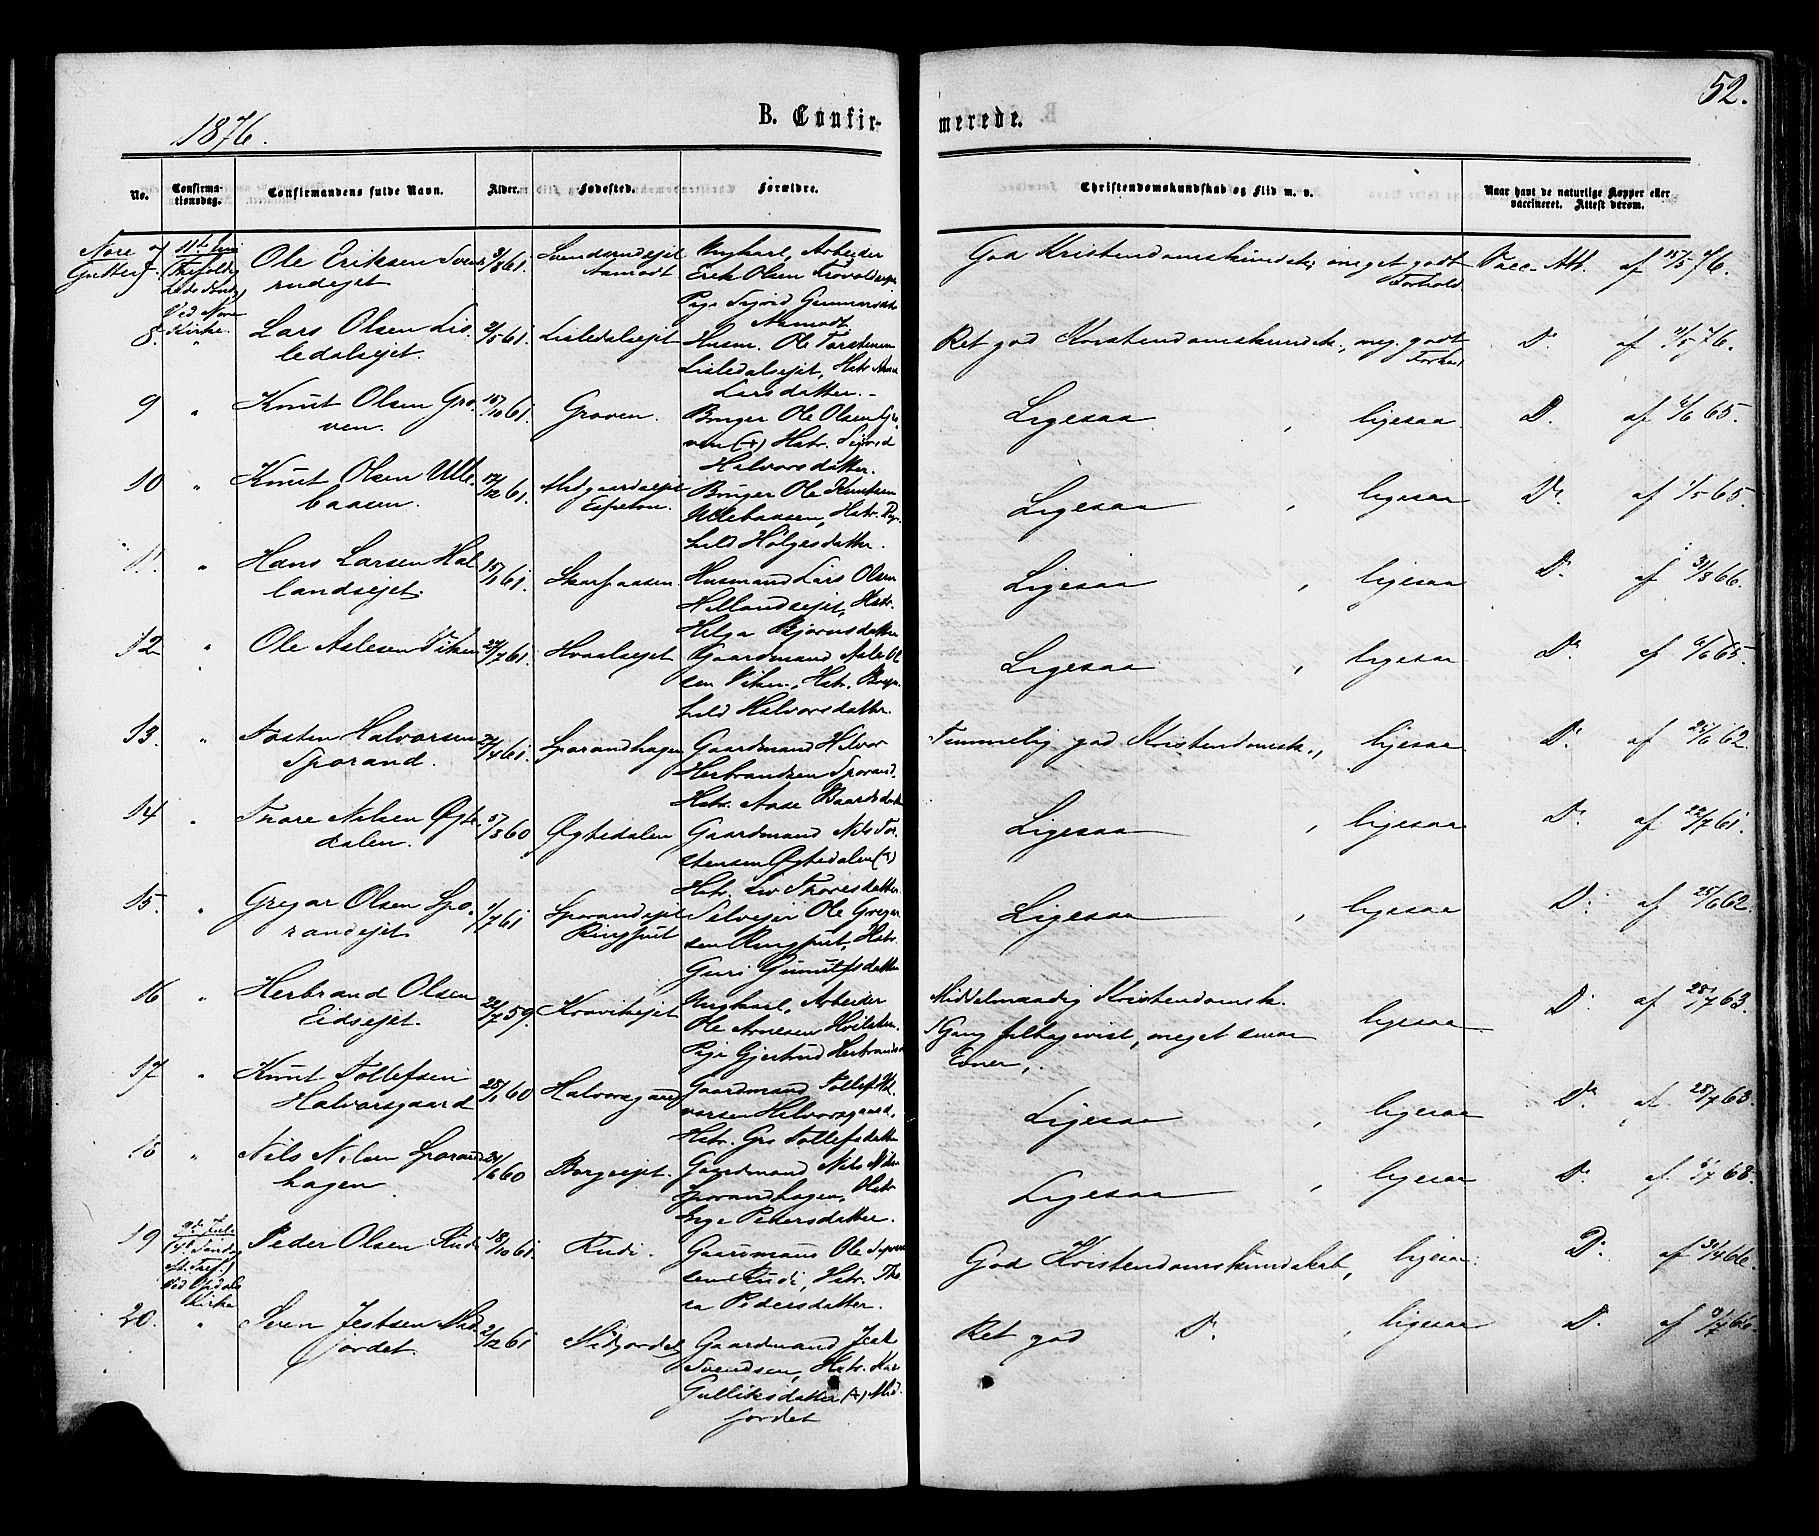 52.
1876.
B. Confir-
merede.
No.
Confirma-
tionsdag.
Confirmandens fulde Navn.
Alder.
Fødested.
Forældre.
Christendomskundskab og Flid m. v.
Naar havt de naturlige Kopper eller
vaccineret. Attest derom.
Nore
Gutter 7.
11te Juni
Ved Nore
Kirke.
Ole Eriksen Svend-
rudejet
3/8 61.
Svendrudejet
Aamodt
Ungkarl, Arbeider
Erik Olsen
Pige Sigrid Gunnarsdatter
Aamodt
God Kristendomskundsk., meget godt
Forhold
Vacc. Att. af 15/5 76.
8. "
Lars Olsen Lis-
ledalsejet.
2/5 61.
Lisledalsejet
Husm. Ole Torstensen
Lisledalsejet, Hstr.
Larsdatter.
Ret god Kristendomskundsk., meg. godt
Forhold
Do af 11/5 76.
9 "
Knut Olsen Gro-
ven.
15/10 61.
Groven.
Bruger Ole Olsen Gro-
ven (+) Hstr. Sigrid
Halvorsdatter.
Ligesaa , ligesaa
Do af 6/6 65.
10 "
Knut Olsen Ulle-
baasen.
17/12 61.
Midgaardsejet
Espeton.
Bruger Ole Knutsen
Ullebaasen, Hstr. Ragn-
hild Holgesdatter.
Ligesaa , ligesaa
Do af 1/5 65.
11. "
Hans Larsen Hal-
landsejet.
15/1 61.
Skarpaasen
Husmand Lars Olsen
Hallandsejet, Hstr.
Helga Bjørnsdatter
Ligesaa , ligesaa
Do af 31/8 66.
12 "
Ole Aslesen Viken
27/7 61.
Hvaalsejet
Gaardmand Asle Ol-
sen Viken, Hstr. Ragn-
hild Halvorsdatter.
Ligesaa , ligesaa
Do af 6/6 65.
13. "
Tosten Halvorsen
Sporand.
27/4 61.
Sporandhagen
Gaardmand Halvor
Herbrandsen Sporand.
Hstr. Aase Baardsdatter
Temmelig god Kristendomsk., ligesaa
Do af 25/6 62.
14 "
Thore Nilsen Øgte-
dalen.
5/3 60
Øgtedalen
Gaardmand Nils Tor-
stensen Øgtedalen (+)
Hstr. Liv Thoresdatter
Ligesaa , ligesaa
Do af 22/7 61.
15. "
Gregar Olsen Spo-
randejet.
1/7 61
Sporandsejet
Ringput
Selvejer Ole Gregar-
sen Ringput, Hstr.
Guri Gunulfsdatter
Ligesaa , ligesaa
Do af 25/6 62.
16 "
Herbrand Olsen
Eidsejet.
22/7 59.
Kravikejet
Ungkarl, Arbeider
Ole Arnesen
Pige Gjertrud Herbrandsd.
Middelmaadig Kristendomsk.
meget smaa
Evner, ligesaa
Do af 28/7 63.
17 "
Knut Tollefsen
Halvorsgaard
25/1 60
Halvorsgaard
Gaardmand Tollef Hal-
vorsen Halvorsgaard,
Hstr. Gro Tollefsdatter
Ligesaa , ligesaa
Do af 28/7 63.
18 "
Nils Nilsen Sporand-
hagen
21/6 60
Borgsejet.
Gaardmand Nils Nilsen
Sporandhagen, Hstr.
Pedersdatter.
Ligesaa , ligesaa
Do af 1/7 68.
19
9de Juli
Ved Opdals
Kirke
Peder Olsen Rudi
18/10 61.
Rudi.
Gaardmand Ole Syver-
sen Rudi, Hstr. Tho-
ra Pedersdatter.
God Kristendomskundskab, ligesaa
Do af 31/4 66.
20. "
Søren Jestsen Mid-
jordet.
2/12 61
Midjordet
Gaardmand Jest
Svendsen, Hstr.
Gulliksdatter (+) Mid-
jordet
Ret god Do , ligesaa
Do af 9/7 66.